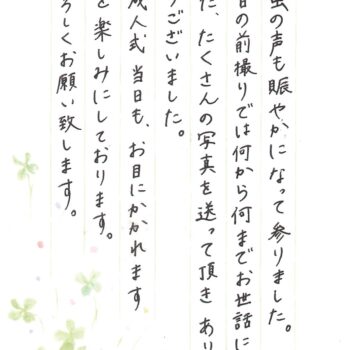 虫の声も賑やかになって参りました。
日の前撮りでは何から何までお世話に
た、たくさんの写真を送って頂き あり
うございました。
成人式 当日も、お目にかかれます
を楽しみにしております。
ろしくお願い致します。